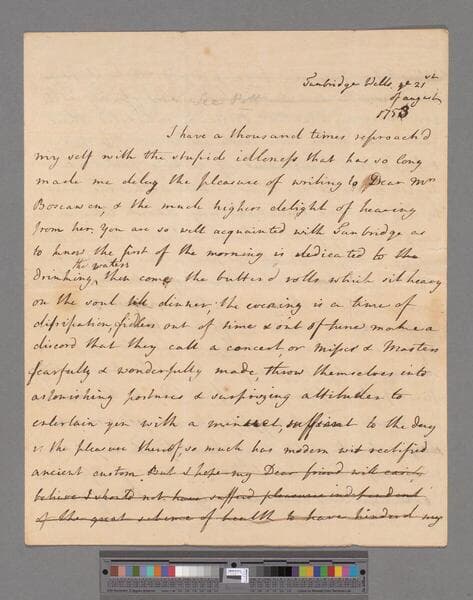 Tunbridge Wells ye 21st
of august
1753
I have a thousand times reproach'd
my self with the stupid idleness that has so long
made me delay the pleasure of writing to Dear Mrs
Boscawen, & the much higher delight of hearing
from her. You are so well acquainted with Tunbridge as
to know the first of the morning is dedicated to the
drinking the waters, then come the butterd rolls which sit heavy
on the soul till dinner, the evening is a time of
dissipation, fidlers out of time & out of tune make a
discord that they call a concert, or Misses & Masters
fearfully & wonderfully made, throw themselves into
astonishing postures & surprizing attitudes to
entertain you with a minuet, sufficient to the day
is the pleasure thereof, so much has modern wit rectified
ancient custom. But I hope my Dear friend will easily
believe I should not have sufferd pleasures independent
of the great scheme of health to have hinderd my